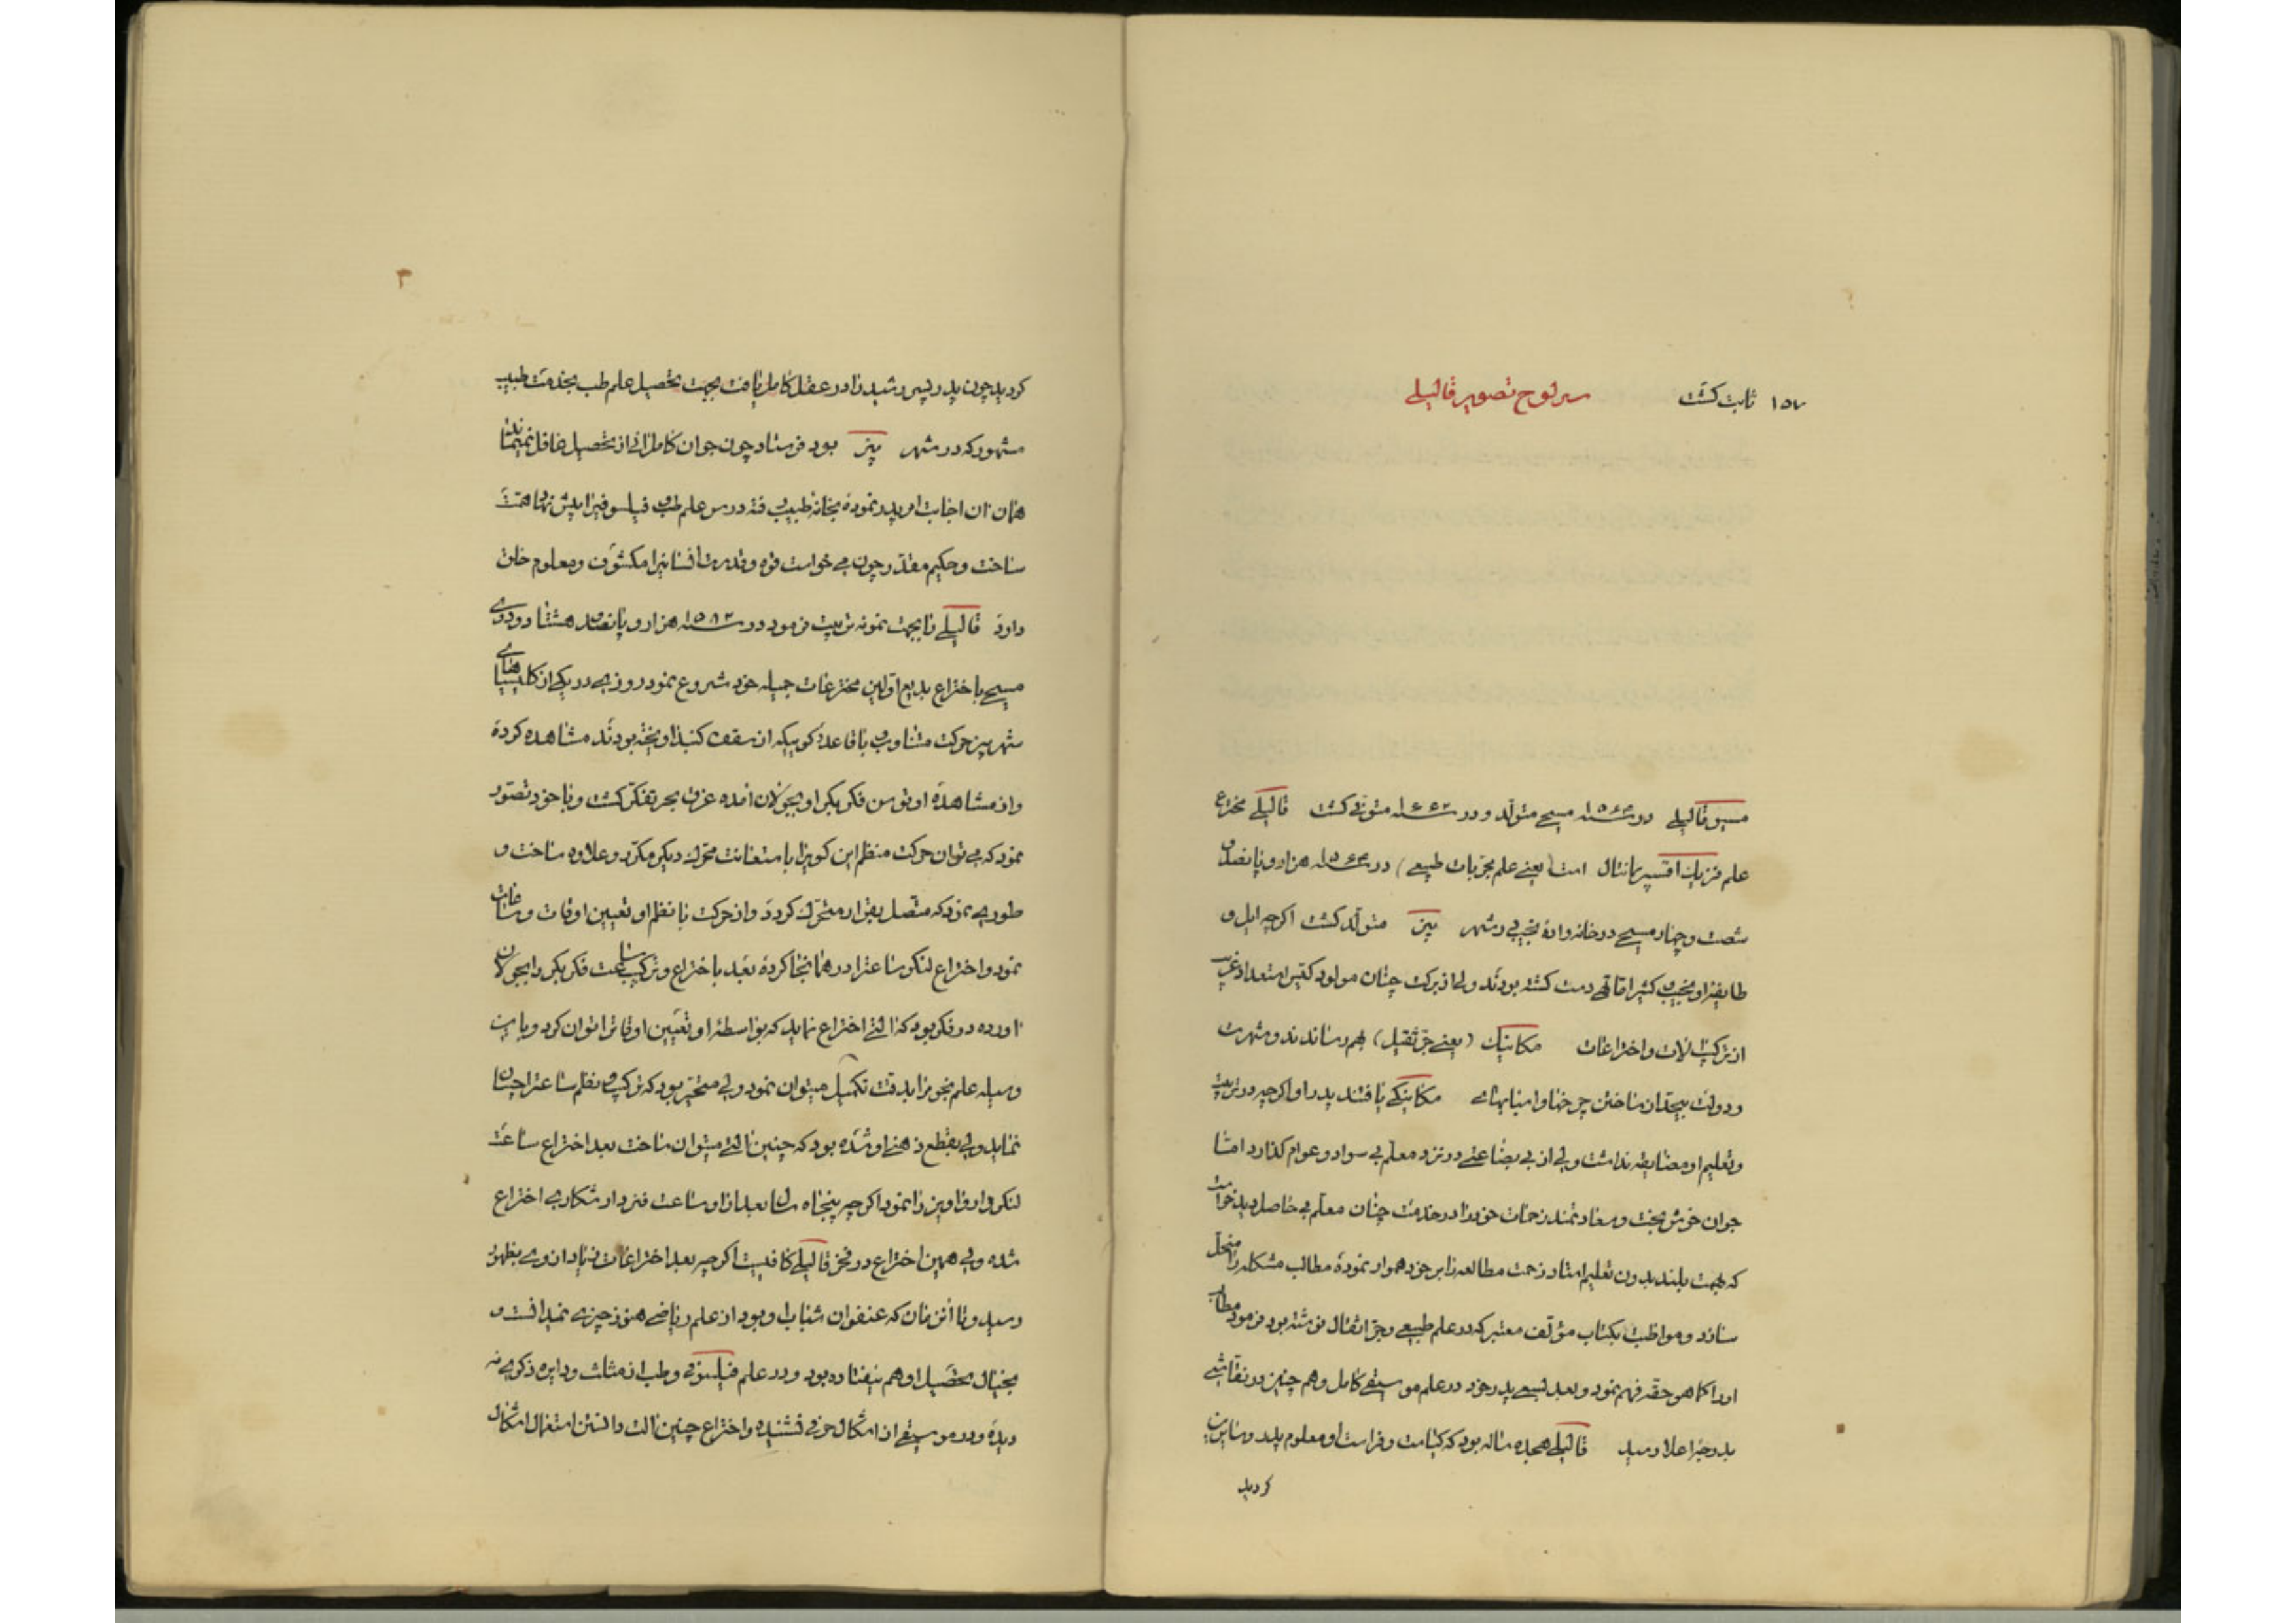 ۱۵۷ ثابت کشت سرلوح تصویر قالیلے
مسیو قالیلے در سنه ۱۵۶۴ مسیحے متولّد و در سنه ۱۶۴۲ متوفی کشت قالیلے مخترع
علم فزیك اقسپریمانتال است (یعنے علم تجربیات طبیعے) در سنه ۱۵۶۴ هزار و پانصد و
شصت و چهار مسیحے در خانه واده نجیبی در شهر پیز متولّد کشت اکرچه ایل و
طایفه او نجیب کثیر امّا تهی دست کشته بودند ولی از برکت چنان مولود کثیر استعداد غریب
از ترکیب الات و اختراعات مکانیك (یعنے جرّ ثقیل) بهم رساندند و شهرت
و دولت بیحد از ساختن چرخها و اسبابهاے مکانیکے یافتند پدر او اکرچه در تربیت
و تعلیم او مضایقه نداشت ولی از بی بضاعتے در نزد معلّم بی سواد و عوام کذارد امّا
جوان خوش بخت و سعادتمند زحمات خود را در خدمت چنان معلّم بی حاصل دید خواست
که بهمت بلند بدون تعلیم استاد زحمت مطالعه را بر خود هموار نموده مطالب مشکله را منحل
سازد و مواظبت بکتاب مؤلّف معتبر که در علم طبیعے و جرّ اثقال نوشته بود فرمود مطالب
او را کما هو حقه فهم نمود و بعد بسعے پدر خود در علم موسیقے کامل و هم چنین در نقاشے
بدرجه اعلا رسید قالیلے هجده ساله بود که کیاست و فراست او معلوم پدر و سایرین
کردید
کردید چون پدر پسر رشید را در عقل کامل یافت بجهت تحصیل علم طب بخدمت طبیب
مشهور که در شهر پیز بود فرستاد چون جوان کامل انی از تحصیل غافل نمیماند
همان ان اجابت امر پدر نموده بخانه طبیب رفته درس علم طب و فیلسوفی را پیش نهاد همّت
ساخت و حکیم مقتدر چون مے خواست قوه و قدرت انسانیرا مکشوف و معلوم خلق
دارد قالیلے را بجهت نمونه تربیت فرمود در سنه ۱۵۸۲ هزار و پانصد و هشتاد و دوے
مسیحے باختراع بدیع اوّلین مخترعات جمیله خود شروع نمود روزے در یکے از کلیساهاے
شهر پیز حرکت متناوب و با قاعده کوییکه از سقف کنبد اویخته بودند مشاهده کرده
و از مشاهده او توسن فکر بکر او بجولان امده غرق بحر تفکر کشت و با خود تصوّر
نمود که مے توان حرکت منظم این کوی را باستعانت محرّك دیکر مکرّر و علاوه ساخت و
طورے نمود که متصل بقرار متحرّك کردد و از حرکت با نظم او تعیین اوقات و ساعات
نمود و اختراع لنکر ساعترا در همانجا کرده بعد باختراع و ترکیب ساعت فکر بکر را بجولان
اورده در فکر بود که التے اختراع نماید که بواسطه او تعیین اوقاترا توان کرد و باین
وسیله علم نجوم را بدقت تکمیل میتوان نمود ولی متحیّر بود که ترکیب و نظم ساعترا چسان
نماید ولی بقطع ذهنے او شده بود که چنین التے میتوان ساخت بعد اختراع ساعت
لنکر دار و اویز را نمود اکرچه پنجاه سال بعد از او ساعت فنردار شکارے اختراع
شده ولی همین اختراع در فخر قالیلے کافیست اکرچه بعد اختراعات زیاد از وے بظهور
رسید و تا آن زمان که عنفوان شباب او بود از علم ریاضے هنوز چیزے نمیدانست و
بخیال تحصیل او هم نیفتاده بود و در علم فیلسوفی و طب از مثلث و دایره ذکرے نه
دیده و در موسیقے از اشکال حرفی نشنیده و اختراع چنین الت دانستن استعمال اشکال